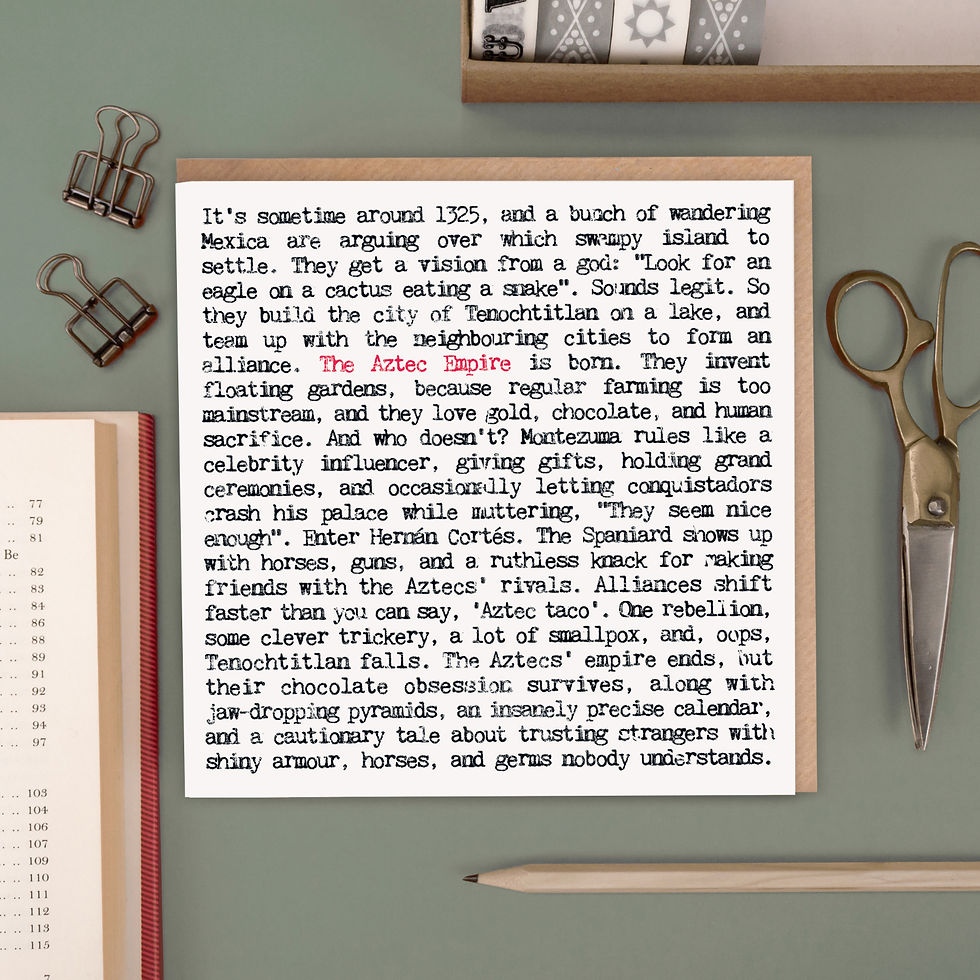 It's sometime around 1325, and a bunch of wandering
Mexica are arguing over which swampy island to
settle. They get a vision from a god: "Look for an
eagle on a cactus eating a snake". Sounds legit. So
they build the city of Tenochtitlan on a lake, and
team up with the neighbouring cities to form an
alliance. The Aztec Empire is born. They invent
floating gardens, because regular farming is too
mainstream, and they love gold, chocolate, and human
sacrifice. And who doesn't? Montezuma rules like a
celebrity influencer, giving gifts, holding grand
ceremonies, and occasionally letting conquistadors
crash his palace while muttering, "They seem nice
enough". Enter Hernán Cortés. The Spaniard shows up
with horses, guns, and a ruthless knack for making
friends with the Aztecs' rivals. Alliances shift
faster than you can say, 'Aztec taco'. One rebellion,
some clever trickery, a lot of smallpox, and, oops,
Tenochtitlan falls. The Aztecs' empire ends, but
their chocolate obsession survives, along with
jaw-dropping pyramids, an insanely precise calendar,
and a cautionary tale about trusting strangers with
shiny armour, horses, and germs nobody understands.
.. 77
.. 79
.. 81
Be
.. 82
.. 83
.. 84
.. 86
.. 88
.. 89
.. 91
.. 92
.. 93
.. 94
.. 97
.. 103
.. 104
.. 106
.. 107
.. 109
.. 110
.. 111
.. 112
.. 113
.. 115
7